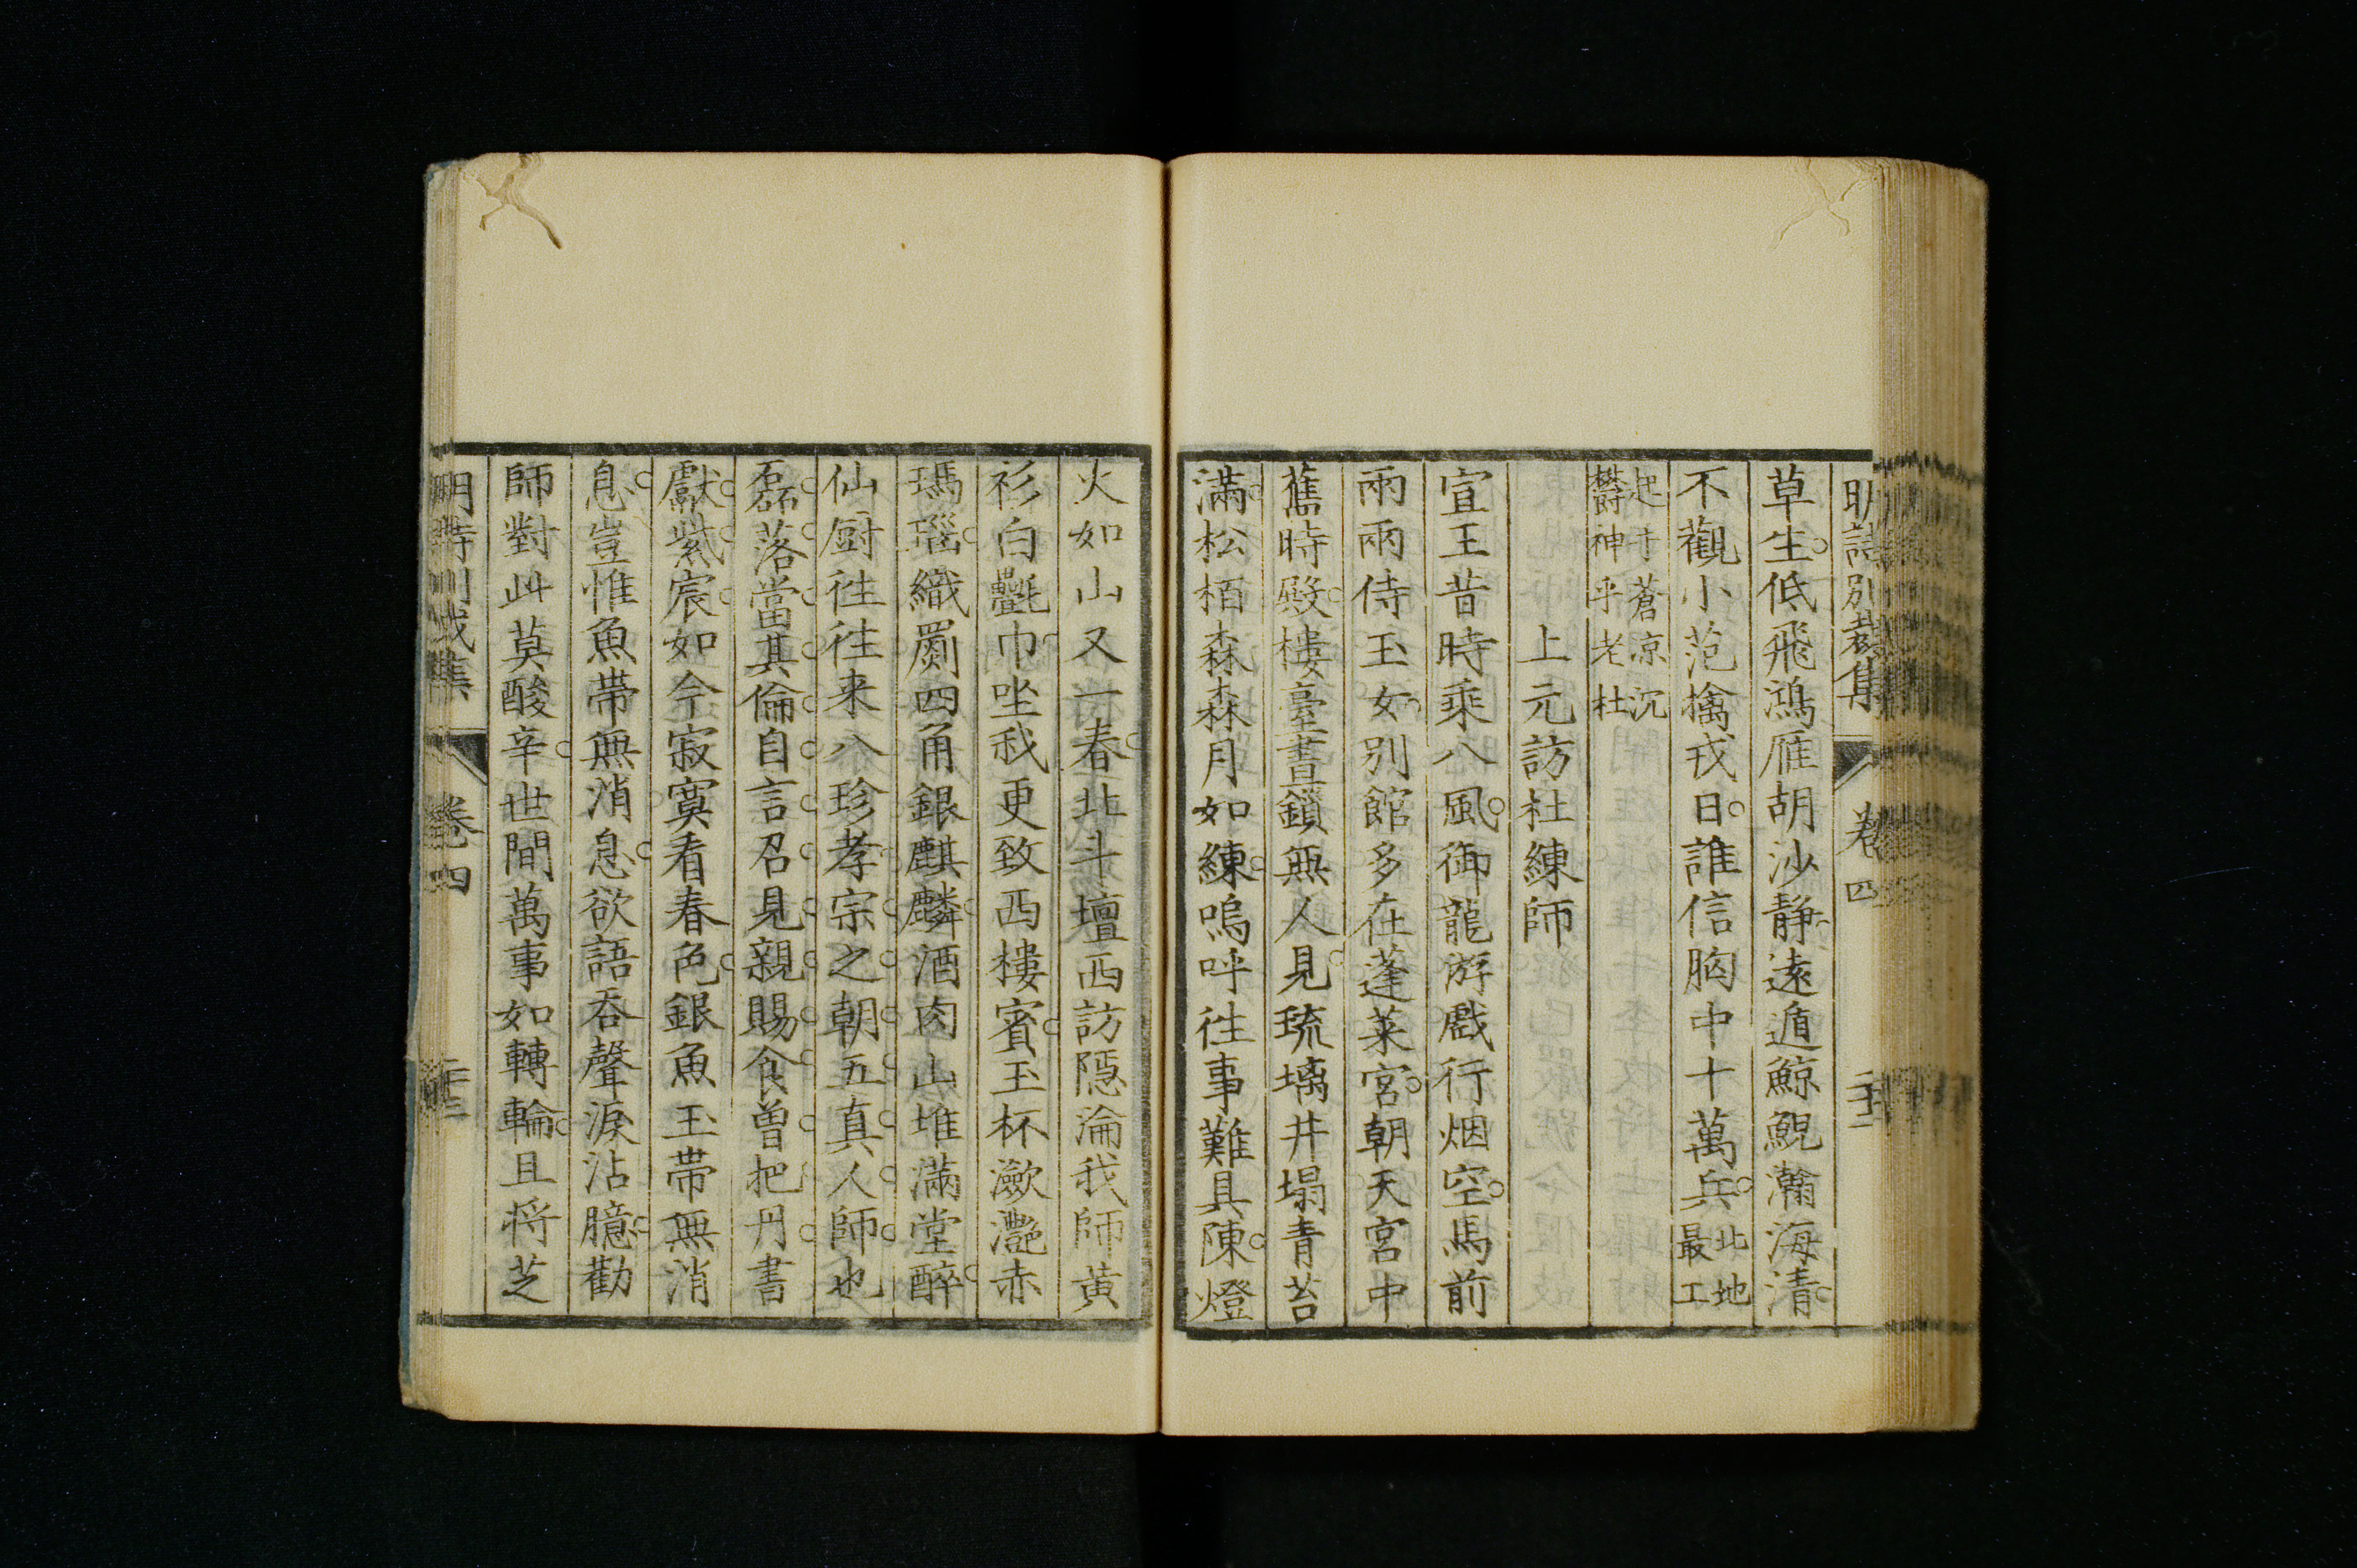 明詩別裁集 卷四
草生低飛鴻雁胡沙靜遠遁鯨鯢瀚海清
不觀小范擒戎日誰信胸中十萬兵北地最工
起于蒼凉沉欝神乎老杜
上元訪杜練師
宣王昔時乘八風御龍游戲行烟空馬前
兩兩侍玉女別館多在蓬萊宮朝天宮中
舊時殿樓臺晝鎖無人見琉璃井塌青苔
滿松栢森森月如練嗚呼往事難具陳燈
火如山又一春北斗壇西訪隱淪我師黃
衫白氎巾坐我更致西樓賓玉杯瀲灧赤
瑪瑙織罽四角銀麒麟酒肉山堆滿堂醉
仙厨往往来八珍孝宗之朝五真人師也
磊落當其倫自言召見親賜食曾把丹書
獻紫宸如今寂寞看春色銀魚玉帶無消
息豈惟魚帶無消息欲語吞聲淚沾臆勸
師對此莫酸辛世間萬事如轉輪且将芝
明詩別裁集 卷四